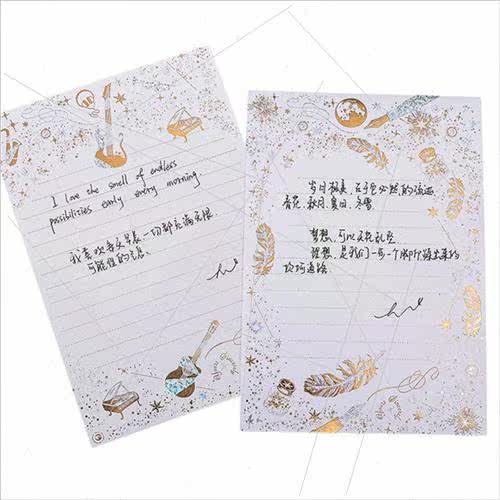 I love the smell of endless
possibilities early every morning.
我喜欢每天早晨一切都充满无限
可能性的气息.
岁月极美,在于它必然的流逝.
春花、秋月、夏日、冬雪.
梦想,可以天花乱坠
理想,是我们一步一个脚印踩出来的
坎坷道路